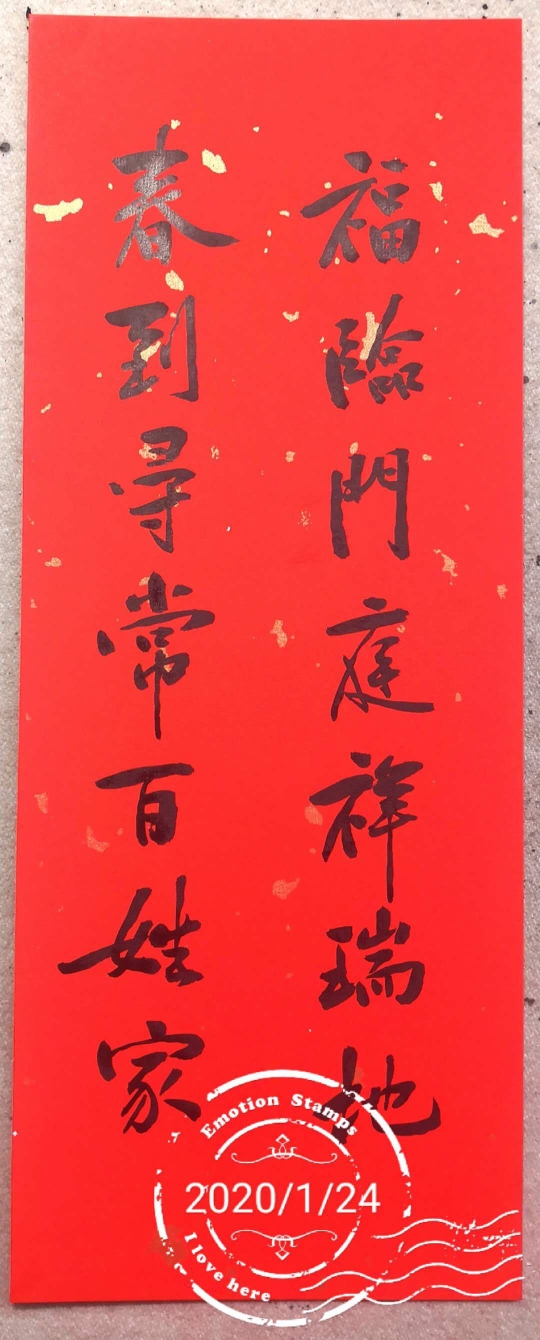 福臨門庭祥瑞地
春到尋常百姓家
Emotion Stamps
2020/1/24
I love here